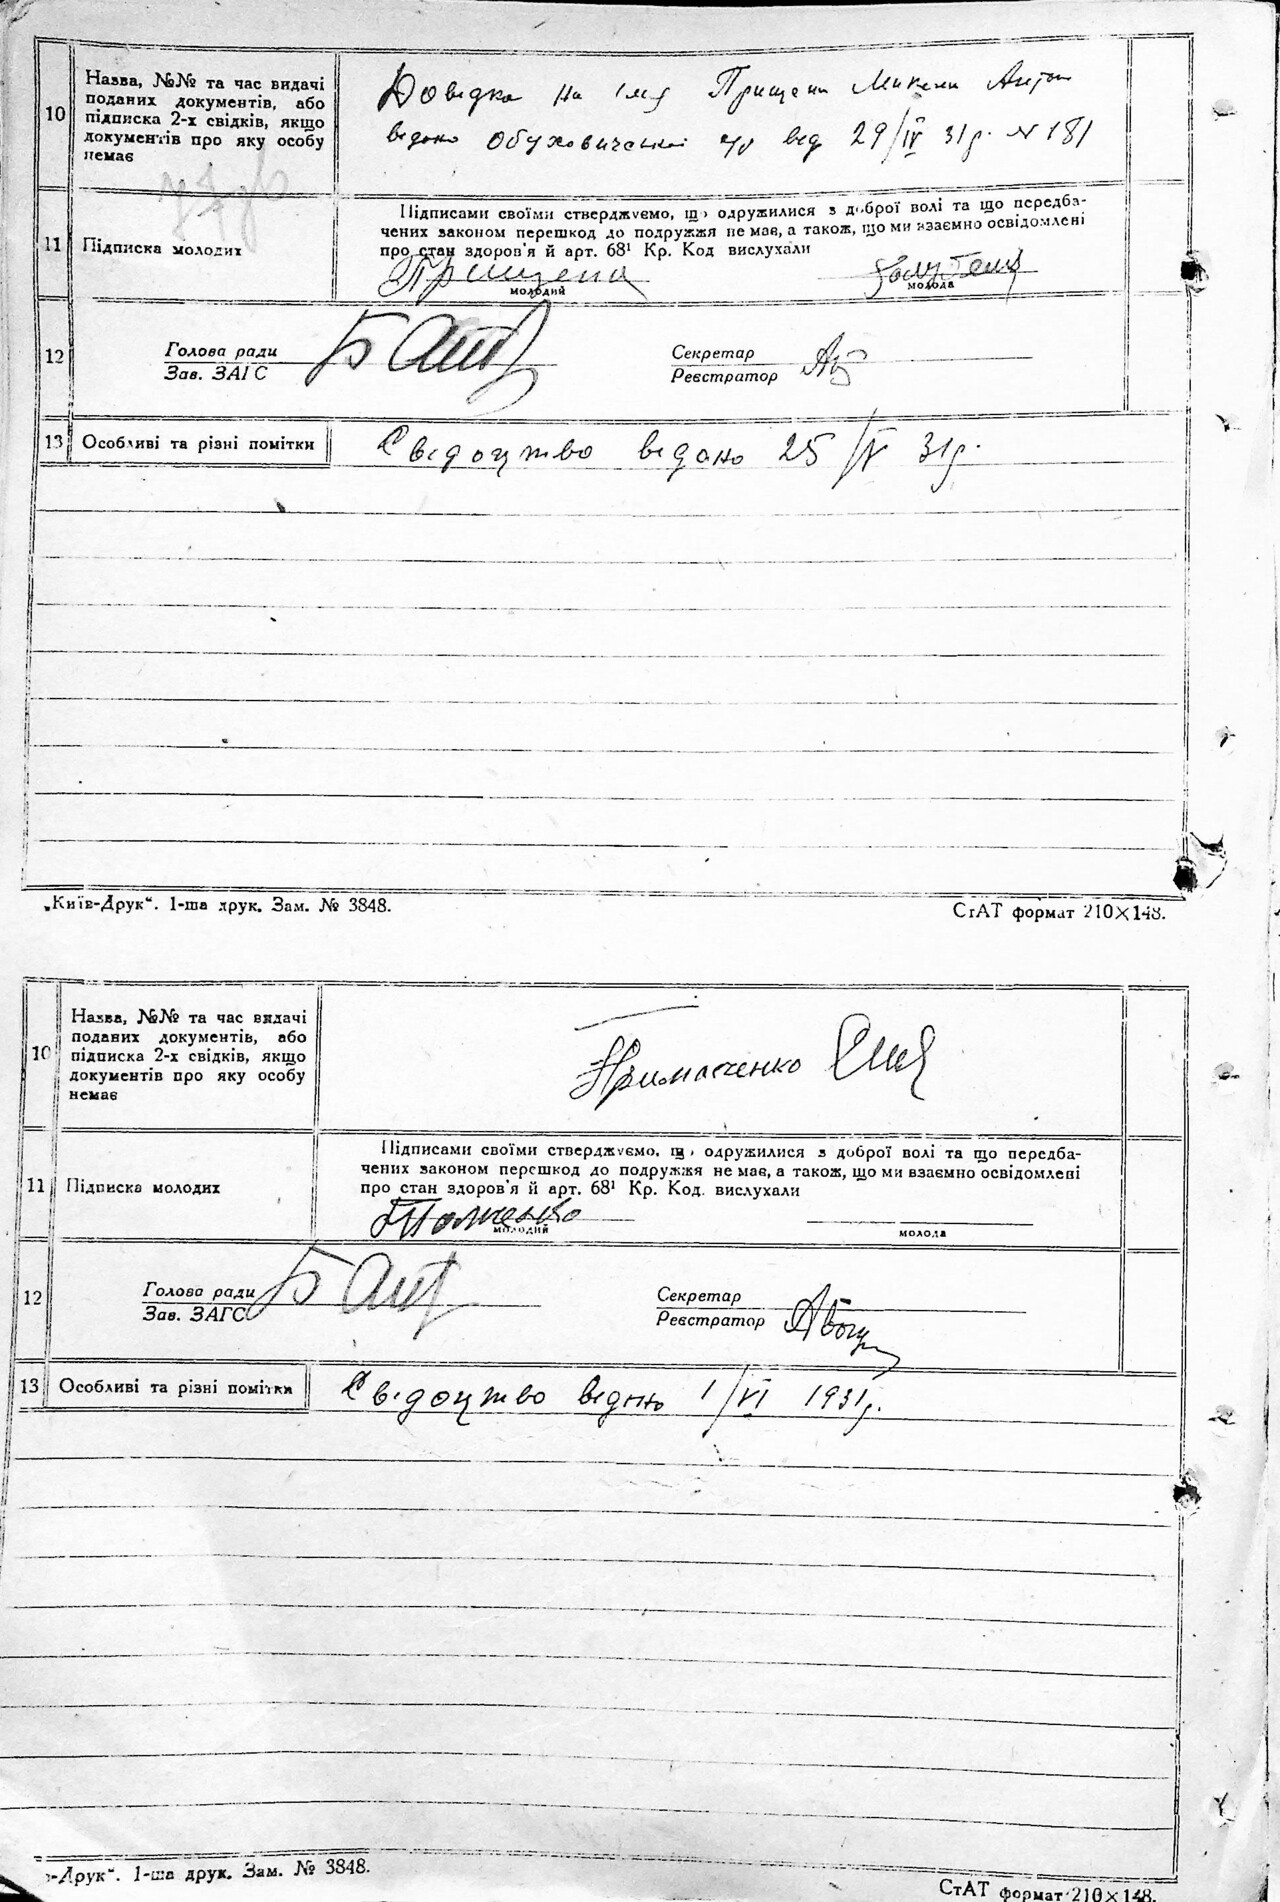 10
Назва, №№ та час видачі
поданих документів, або
підписка 2-х свідків, якщо
документів про яку особу
немає
Довідка на імя Прищепи Микити Антон
відано Обуховичській с/р від 29/IV 31р. № 181
11
Підписка молодих
Підписами своїми стверджуємо, що одружилися з доброї волі та що передба-
чених законом перешкод до подружжя немає, а також, що ми взаємно освідомлені
про стан здоров'я й арт. 68¹ Кр. Код вислухали
Прищепа
молодий
молода
12
Голова ради
Зав. ЗАГС
Секретар
Реєстратор
13
Особливі та різні помітки
Свідоцтво відано 25/IV 31р.
„Київ-Друк“. 1-ша друк. Зам. № 3848.
СтАТ формат 210×148.
10
Назва, №№ та час видачі
поданих документів, або
підписка 2-х свідків, якщо
документів про яку особу
немає
Примаченко
11
Підписка молодих
Підписами своїми стверджуємо, що одружилися з доброї волі та що передба-
чених законом перешкод до подружжя немає, а також, що ми взаємно освідомлені
про стан здоров'я й арт. 68¹ Кр. Код. вислухали
молодий
молода
12
Голова ради
Зав. ЗАГС
Секретар
Реєстратор
13
Особливі та різні помітки
Свідоцтво відано 1/VI 1931р.
-Друк“. 1-ша друк. Зам. № 3848.
СтАТ формат 210×148.